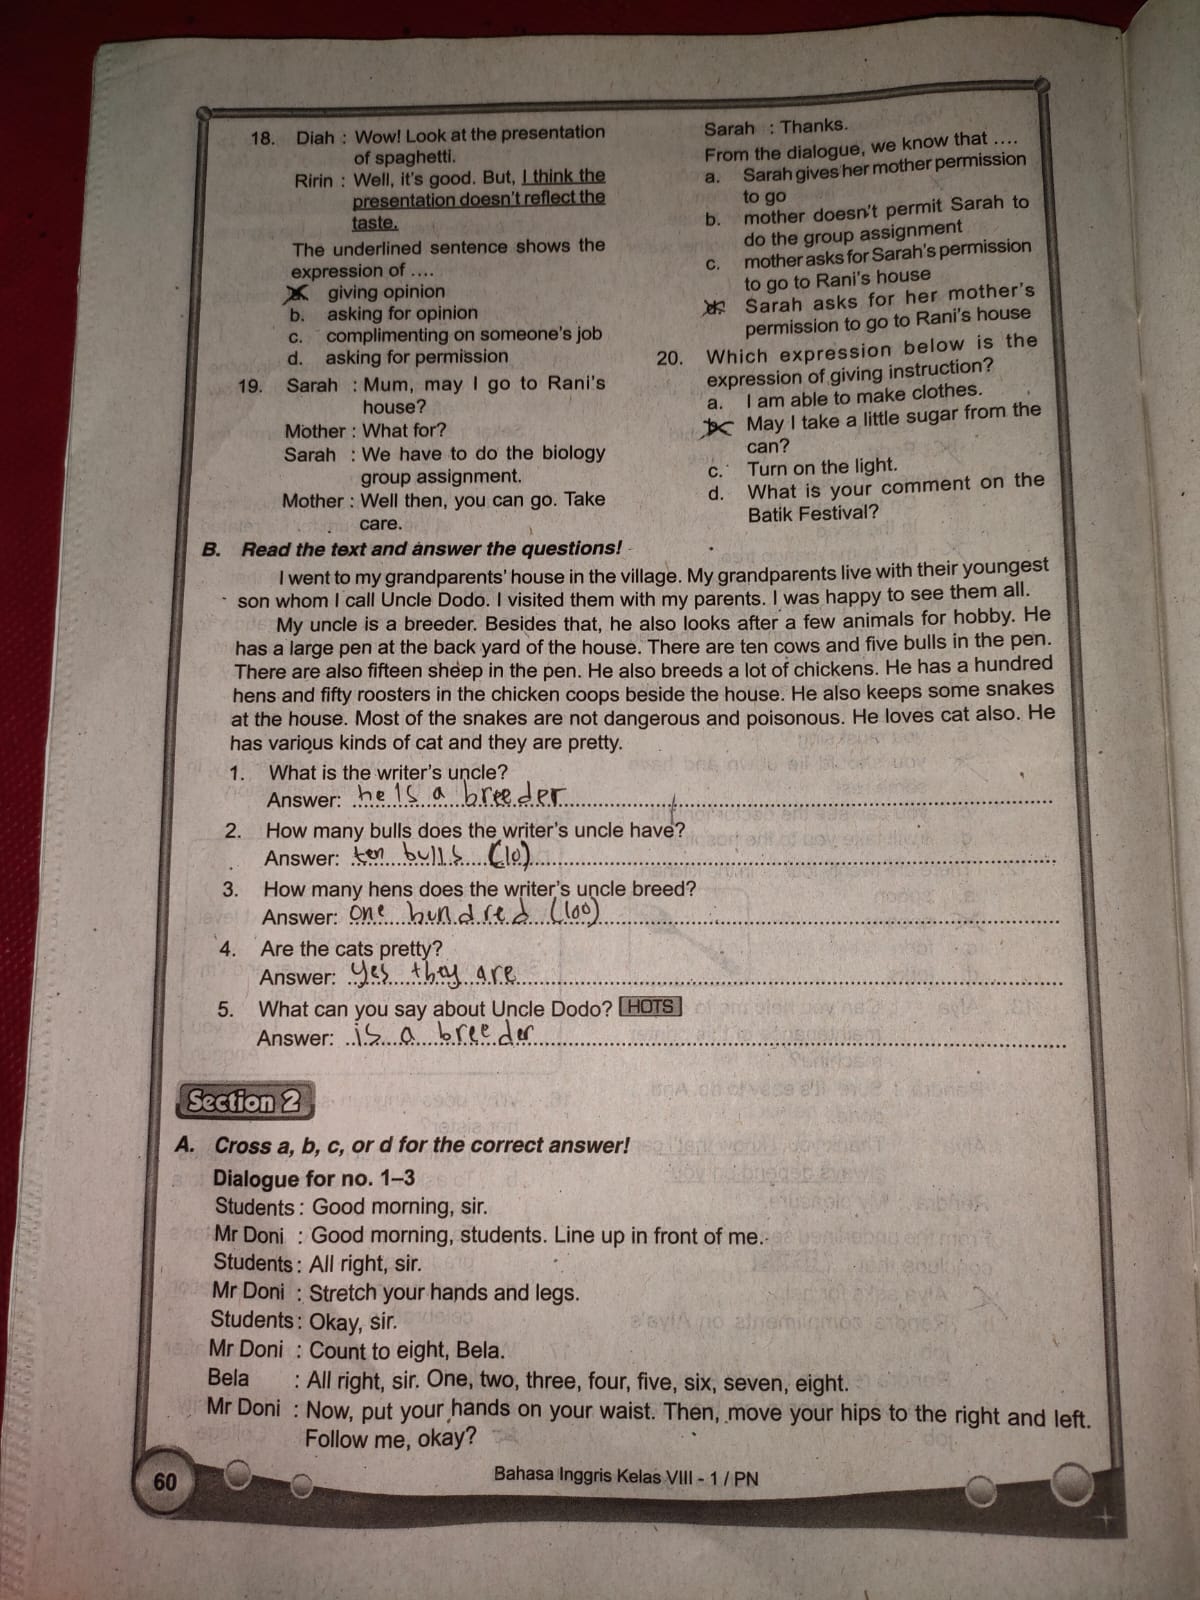 18. Diah : Wow! Look at the presentation
of spaghetti.
Ririn : Well, it's good. But, I think the
presentation doesn't reflect the
taste.
The underlined sentence shows the
expression of ....
a. giving opinion
b. asking for opinion
c. complimenting on someone's job
d. asking for permission
19. Sarah : Mum, may I go to Rani's
house?
Mother : What for?
Sarah : We have to do the biology
group assignment.
Mother : Well then, you can go. Take
care.
Sarah : Thanks.
From the dialogue, we know that ....
a. Sarah gives her mother permission
to go
b. mother doesn't permit Sarah to
do the group assignment
c. mother asks for Sarah's permission
to go to Rani's house
d. Sarah asks for her mother's
permission to go to Rani's house
20. Which expression below is the
expression of giving instruction?
a. I am able to make clothes.
b. May I take a little sugar from the
can?
c. Turn on the light.
d. What is your comment on the
Batik Festival?
B. Read the text and answer the questions!
I went to my grandparents' house in the village. My grandparents live with their youngest
son whom I call Uncle Dodo. I visited them with my parents. I was happy to see them all.
My uncle is a breeder. Besides that, he also looks after a few animals for hobby. He
has a large pen at the back yard of the house. There are ten cows and five bulls in the pen.
There are also fifteen sheep in the pen. He also breeds a lot of chickens. He has a hundred
hens and fifty roosters in the chicken coops beside the house. He also keeps some snakes
at the house. Most of the snakes are not dangerous and poisonous. He loves cat also. He
has various kinds of cat and they are pretty.
1. What is the writer's uncle?
Answer: he is a breeder
2. How many bulls does the writer's uncle have?
Answer: ten bulls (10)
3. How many hens does the writer's uncle breed?
Answer: one hundred (100)
4. Are the cats pretty?
Answer: yes they are
5. What can you say about Uncle Dodo? HOTS
Answer: is a breeder
Section 2
A. Cross a, b, c, or d for the correct answer!
Dialogue for no. 1–3
Students : Good morning, sir.
Mr Doni : Good morning, students. Line up in front of me.
Students : All right, sir.
Mr Doni : Stretch your hands and legs.
Students : Okay, sir.
Mr Doni : Count to eight, Bela.
Bela : All right, sir. One, two, three, four, five, six, seven, eight.
Mr Doni : Now, put your hands on your waist. Then, move your hips to the right and left.
Follow me, okay?
60
Bahasa Inggris Kelas VIII - 1 / PN